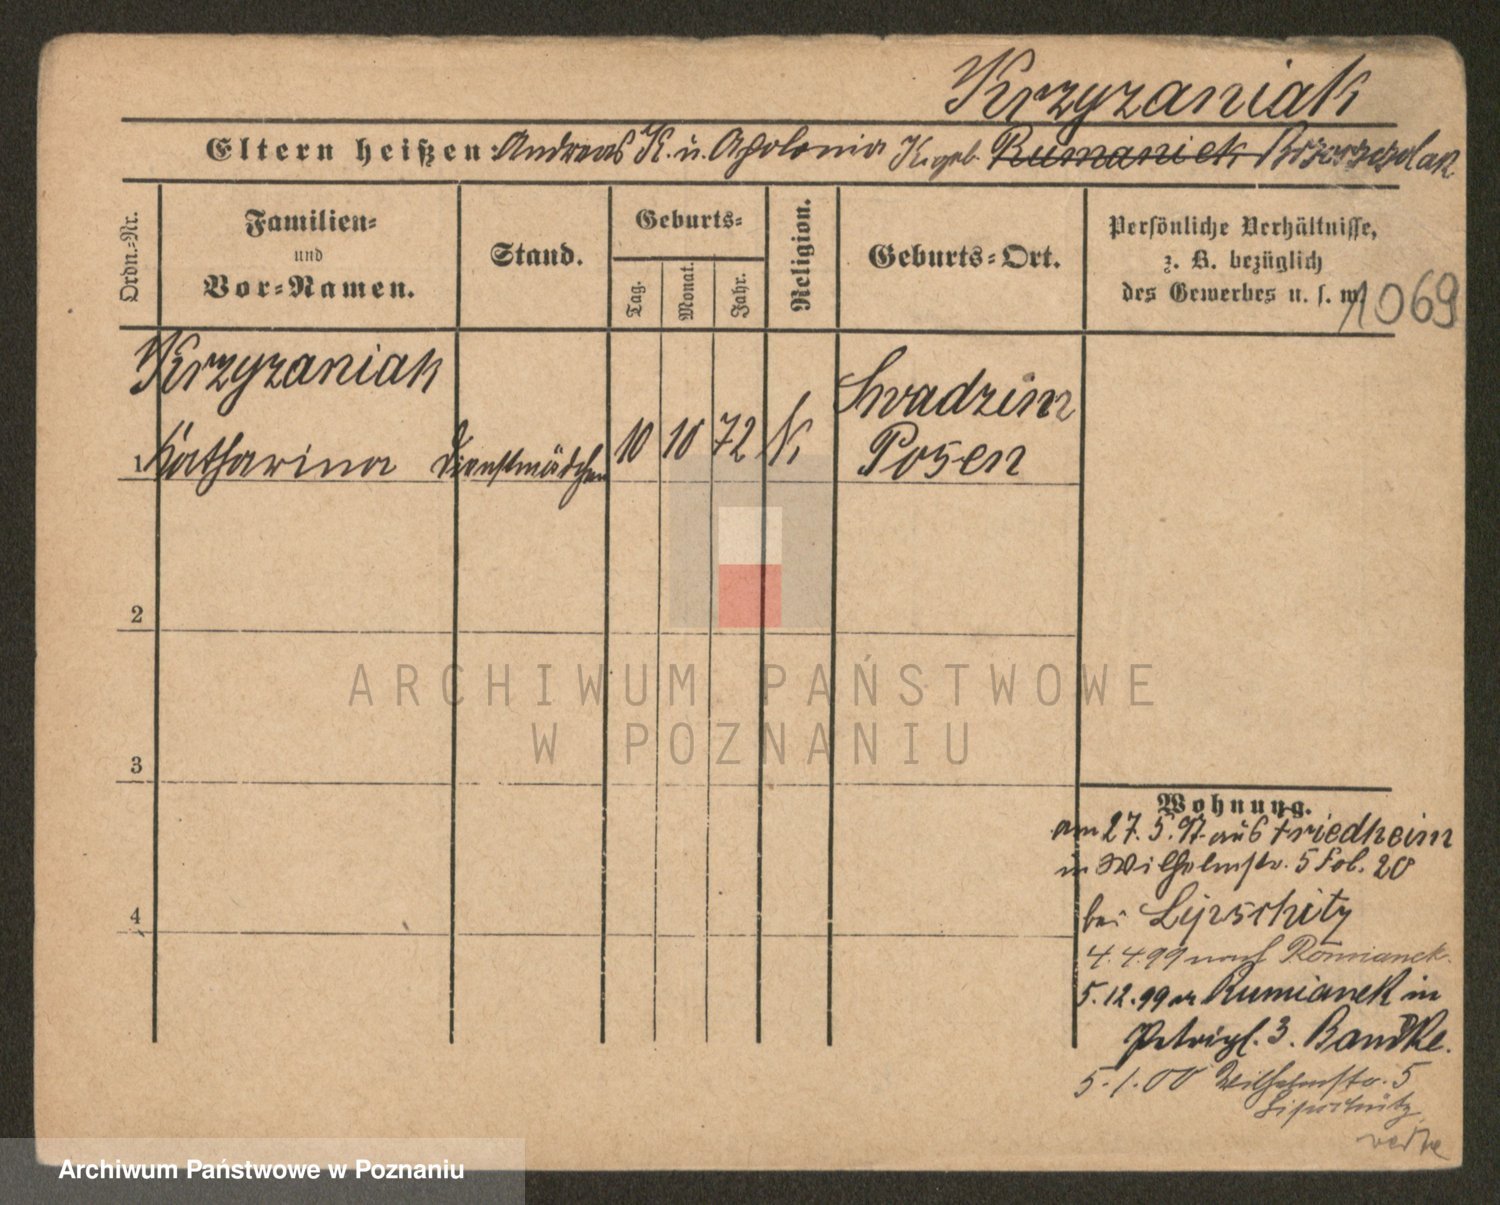 Krzyzaniak
Eltern heißen: Andreas K. u. Apolonia K. geb. Rumaniek
Ordn.-Nr.
Familien-
und
Vor-Namen.
Stand.
Geburts-
Tag.
Monat.
Jahr.
Religion.
Geburts-Ort.
Persönliche Verhältnisse,
z. B. bezüglich
des Gewerbes u. s. w.
1069
Krzyzaniak
1 Katharina Dienstmädchen 10 10 72 K. Swadzim
Posen
2
3
4
ARCHIWUM PAŃSTWOWE
W POZNANIU
Wohnung.
am 27. 5. 97. aus Friedheim
in Wilhelmstr. 5 Fol. 20
bei Lipschitz
4. 4. 99 nach
5. 12. 99 Rumianek in
3.
5. 1. 00 Wilhelmstr. 5
Lipschitz
Archiwum Państwowe w Poznaniu